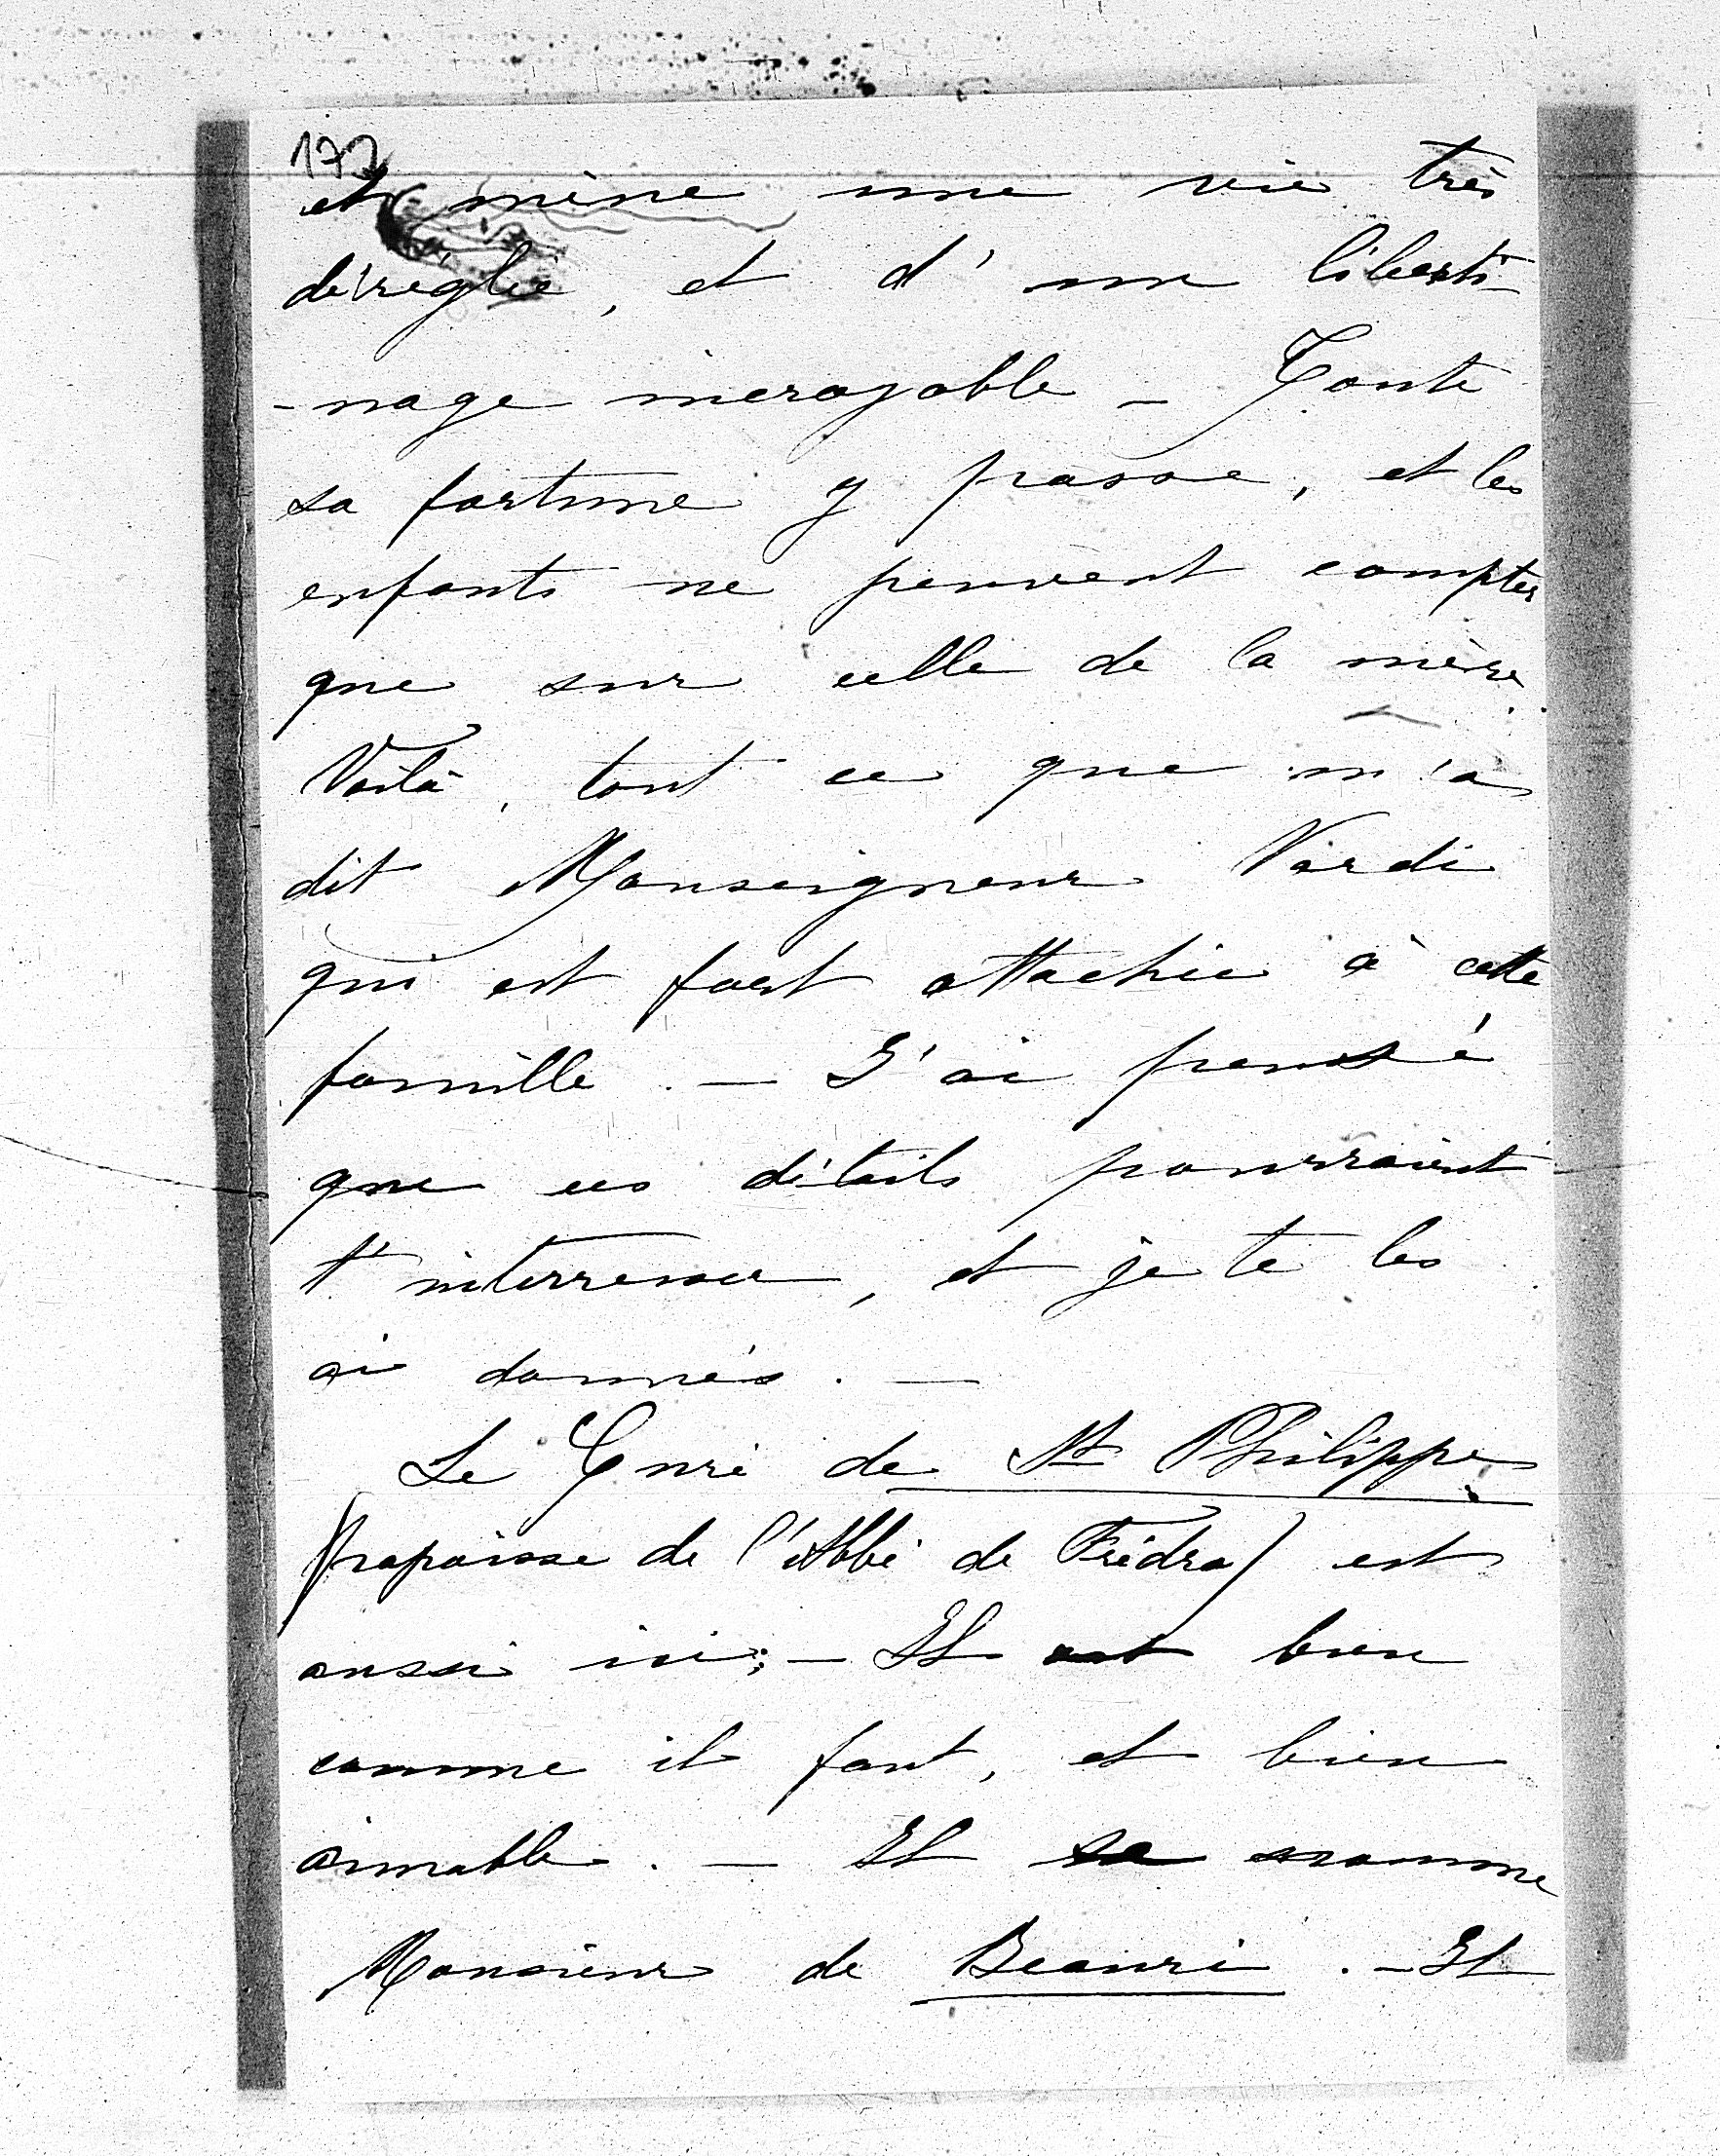 177
et mène une vie très
déréglée, et d'un liberti-
-nage incroyable - Toute
sa fortune y passe, et les
enfants ne peuvent compter
que sur celle de la mère.
Voilà, tout ce que m'a
dit Monseigneur Vardi
qui est fort attachée à cette
famille. — J'ai pensé
que ces détails pourraient
t'interresser, et je te les
ai donnés. —
Le Curé de St Philippe
(paroisse de l'Abbé de ) est
aussi ici; — Il est bien
comme il faut, et bien
aimable. — Il se nomme
Monsieur de . — Il